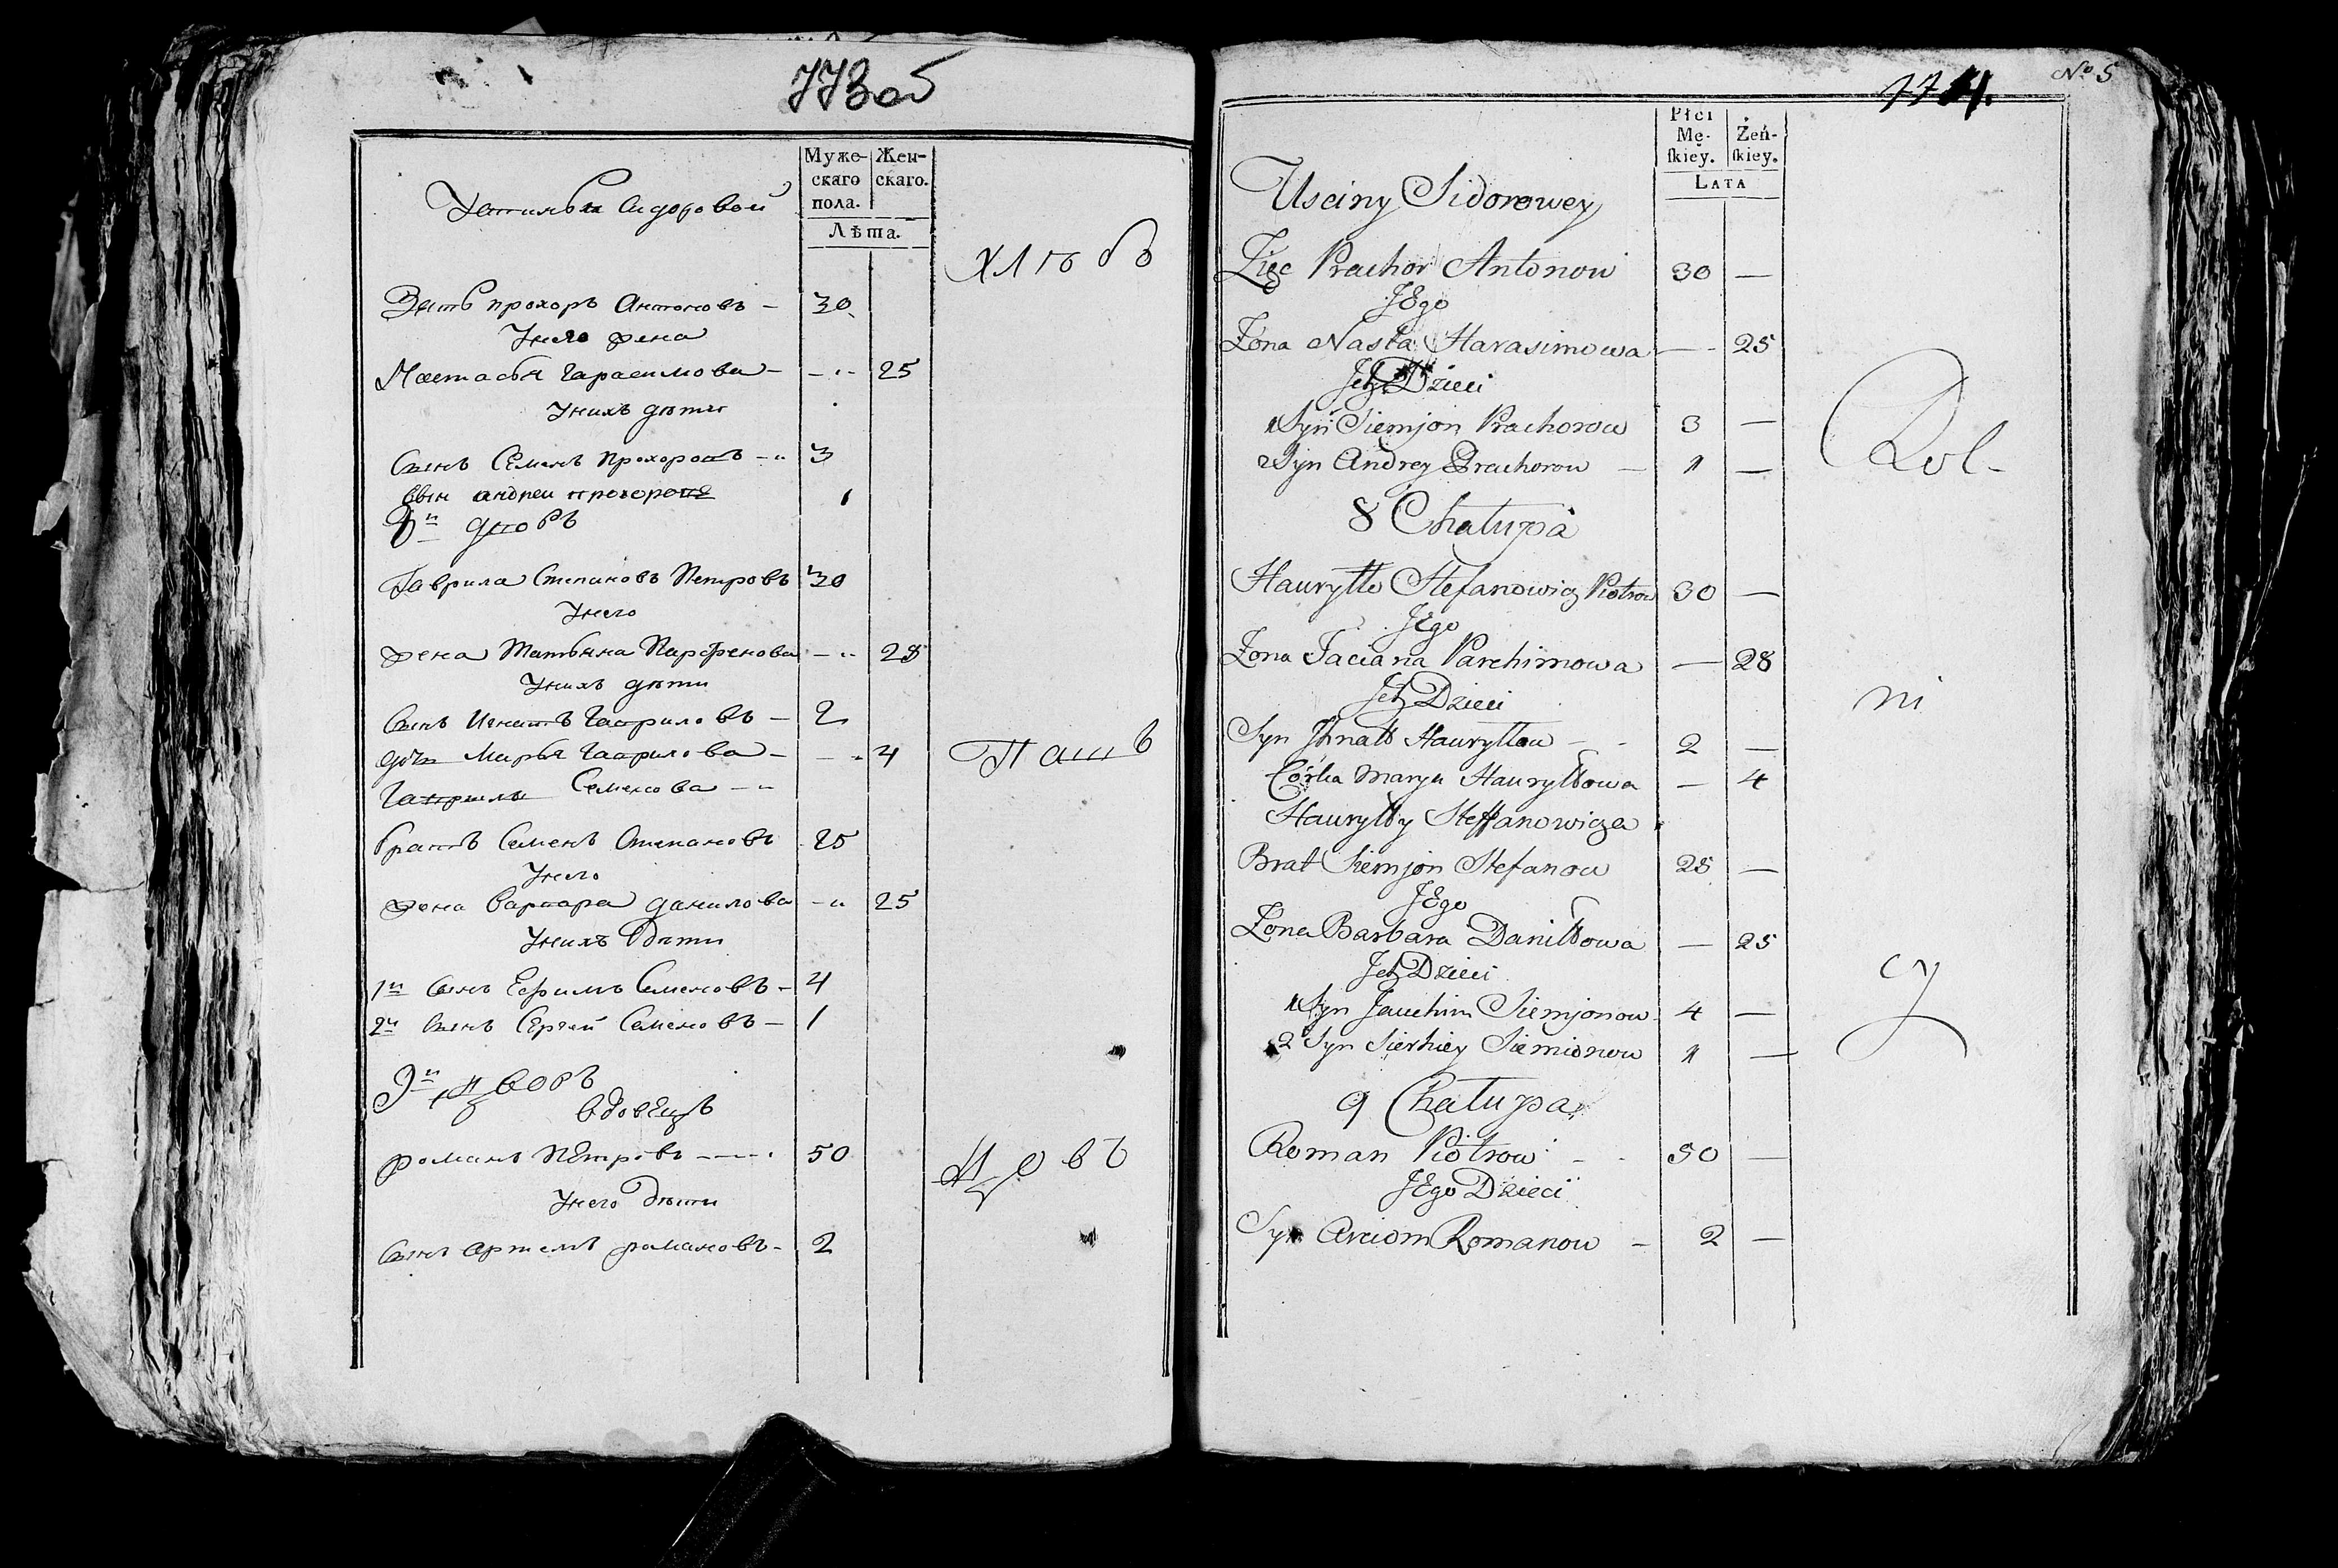 773об
Муже-
скаго
пола.
Жен-
скаго.
Лѣта.
Устиньи Сидоровой
хлѣбо
Зять прохоръ Антоновъ — 30
Унего жена
Настасья Гарасимова — — 25
Унихъ дѣти
Сынъ Семенъ Прохоровъ — 3
Сын андреи прохоровъ 1
8й дворъ
Гаврила Степановъ Петровъ 30
Унего
жена Татьяна Парфенова — 28
Унихъ дѣти
Сынъ Игнатъ Гавриловъ — 2
дочь Марья Гаврилова — — 4
пашъ
Гаврилы Семенова —
братъ Семенъ Степановъ 25
Унего
жена Варвара данилова — 25
Унихъ дѣти
1й Сынъ Ефимъ Семеновъ — 4
2й Сынъ Сергей Семеновъ — 1
9й дворъ
вдовецъ
романъ Петровъ — 50
цовъ
Унего дѣти
Сынъ Артемъ романовъ — 2
№ 5
774.
Płci
Mę-
ſkiey.
Żeń-
ſkiey.
LATA
Usciny Sidorowey
Zięc Prachor Antonow 30 —
JEgo
Zona Nasta Harasimowa — 25
Jch Dzieci
1 Syn Siemjon Prachorow 3 —
2 Syn Andrey Prachorow — 1 —
Rol-
8 Chałupa
Hauryłło Stefanowicz Piotrow 30 —
JEgo
Zona Taciana Parchimowa — 28
Jch Dzieci
ni
Syn Jhnatt Hauryłłow — 2 —
Córka Marya Hauryłłowa — 4
Hauryłły Steffanowicza
Brat Siemjon Stefanow 25 —
JEgo
Zona Barbara Daniłłowa — 25
Jch Dzieci
cy
1 Syn Jauchim Siemjonow 4 —
2 Syn Sierhiey Siemionow 1 —
9 Chałupa
Roman Piotrow — 50 —
JEgo Dzieci
Syn Arciom Romanow — 2 —